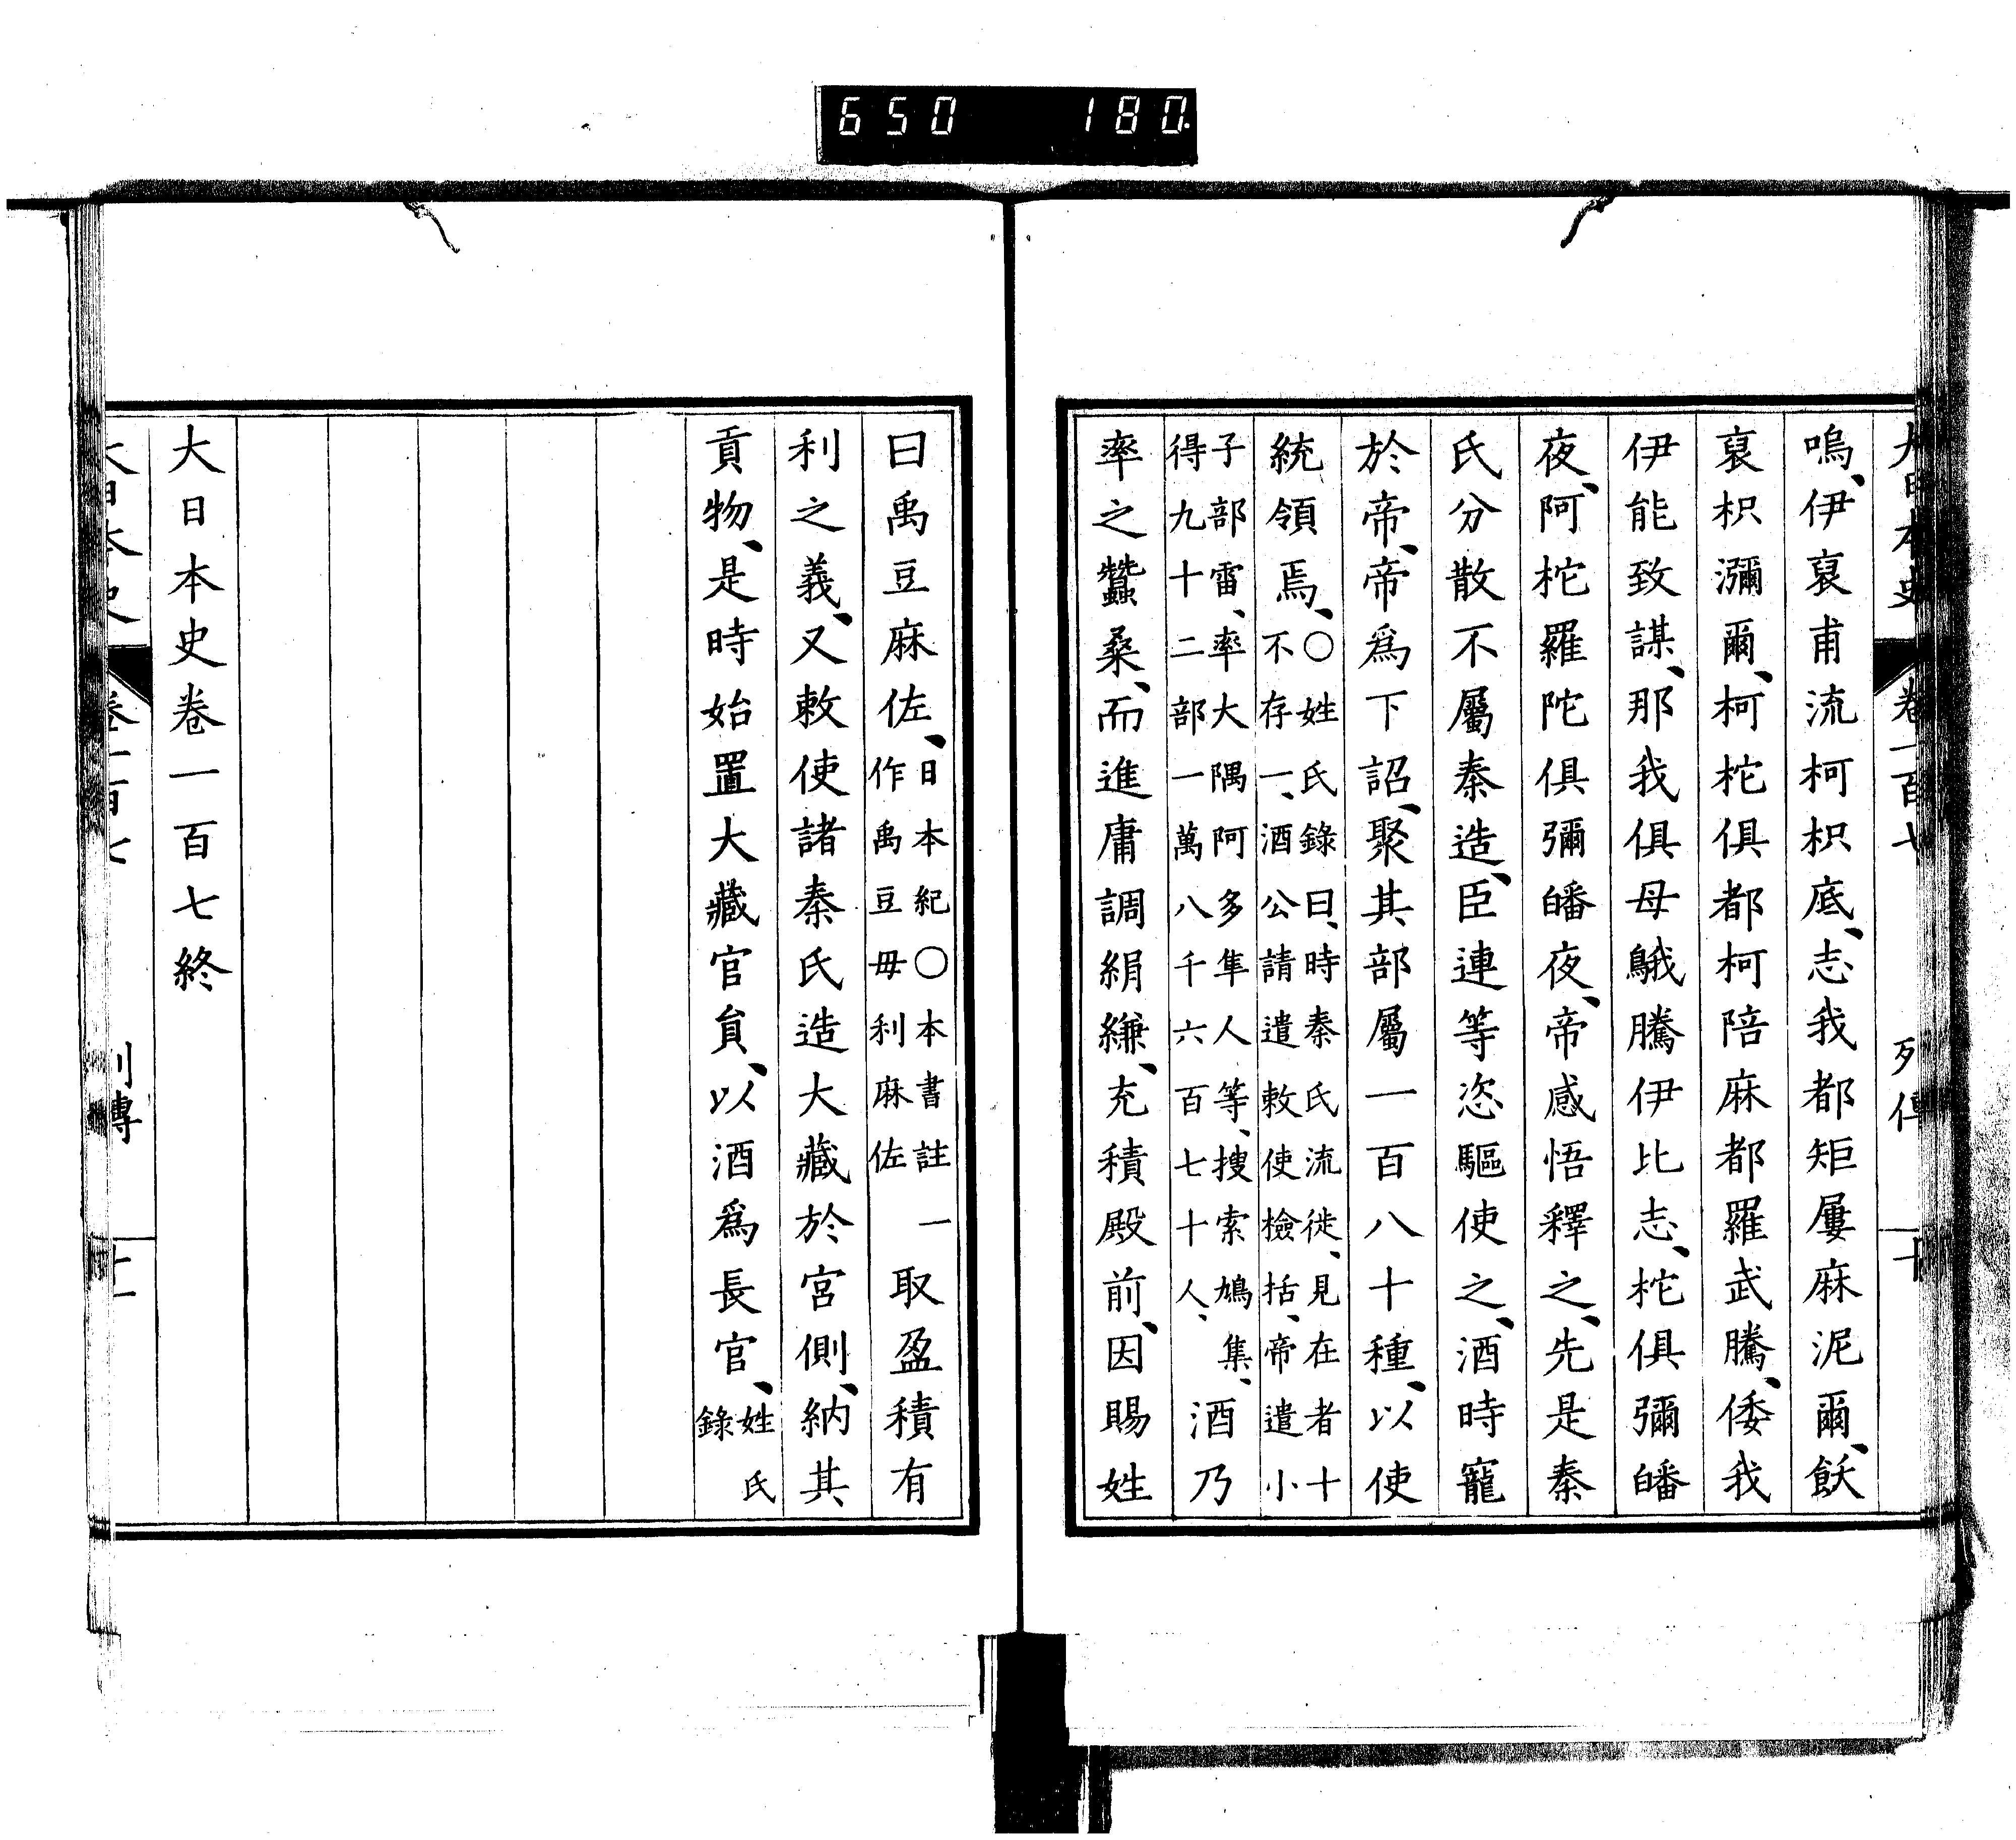 650 180
大日本史 卷一百七 列傳 十
嗚、伊裒甫流柯枳底、志我都矩屢麻泥爾、飫
裒枳瀰爾、柯柁俱都柯陪麻都羅武騰、倭我
伊能致謀、那我俱母鵝騰伊比志、柁俱彌皤
夜、阿柁羅陀俱彌皤夜、帝感悟釋之、先是秦
氏分散不屬秦造、臣連等恣驅使之、酒時寵
於帝、帝爲下詔、聚其部屬一百八十種、以使
統領焉、○姓氏錄曰、時秦氏流徙、見在者十
不存一、酒公請遣敕使檢括、帝遣小
子部雷、率大隅阿多隼人等、搜索鳩集、
得九十二部一萬八千六百七十人、酒乃
率之蠶桑、而進庸調絹縑、充積殿前、因賜姓
曰禹豆麻佐、日本紀○本書註一
作禹豆毋利麻佐取盈積有
利之義、又敕使諸秦氏造大藏於宮側、納其
貢物、是時始置大藏官員、以酒爲長官、姓氏
錄
大日本史卷一百七終
大日本史 卷一百七 列傳 十一